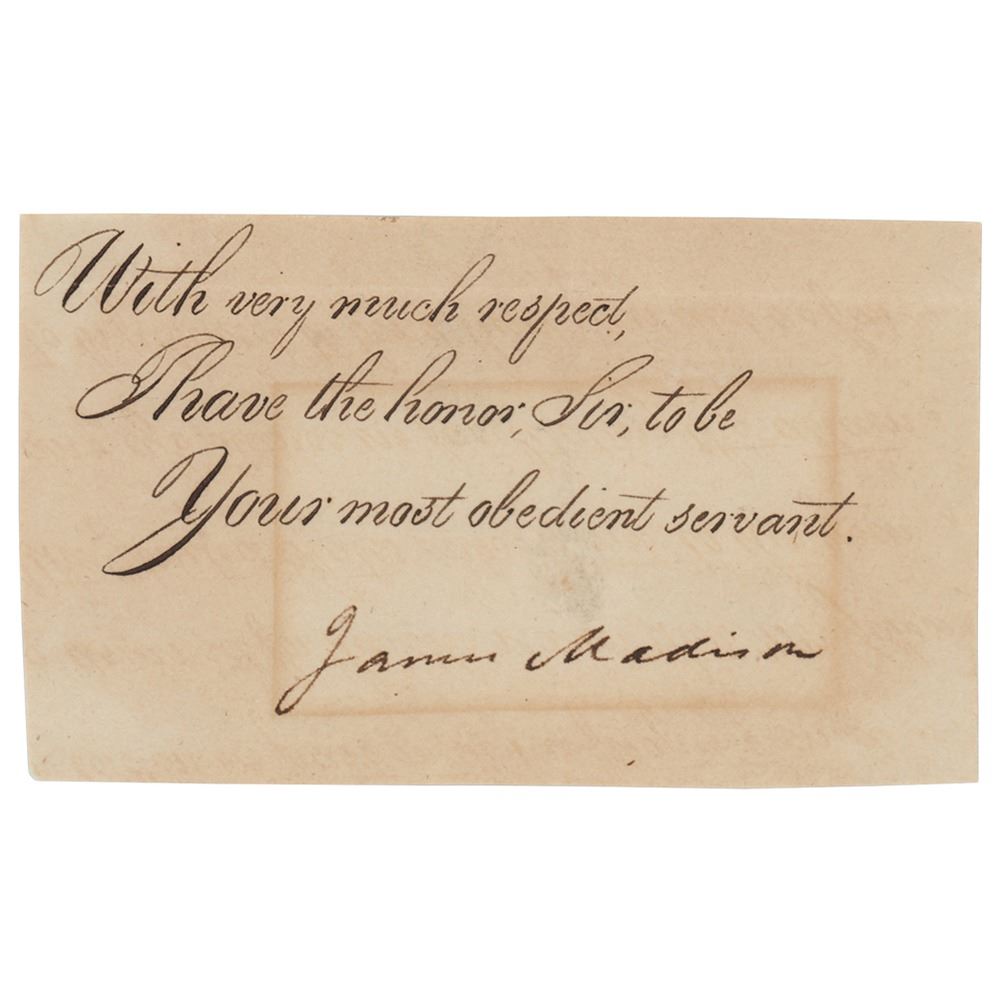 With very much respect,
I have the honor, Sir, to be
Your most obedient servant.
James Madison